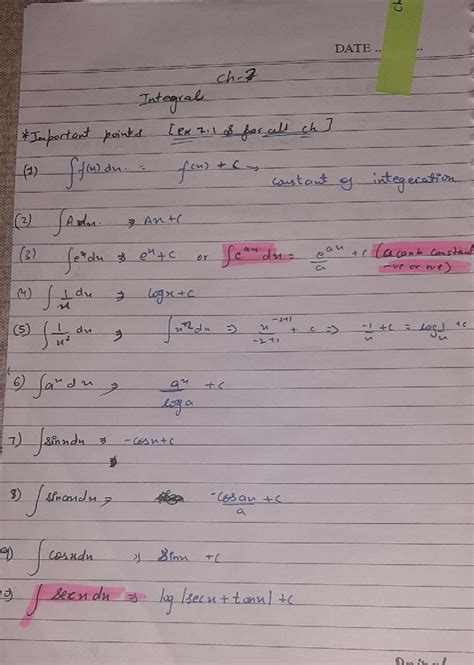 DATE ..
ch
ch-7
Integral
*Important points [ex 7.1 & for all ch]
(1) ∫f(x) dx. = f(x) + c → constant of integeration
(2) ∫A dx. ⇒ Ax+c
(3) ∫eˣdx ⇒ eˣ+c or ∫eᵃˣ dx = eᵃˣ/a + c (a cant constant -ve or +ve)
(4) ∫1/x dx ⇒ logx+c
(5) ∫1/x² dx ⇒ ∫x⁻²dx ⇒ x⁻²⁺¹/-2+1 + c ⇒ -1/x +c = log 1/x +c
6) ∫aˣ dx ⇒ aˣ/log a +c
7) ∫sinxdx ⇒ -cosx+c
8) ∫sinaxdx ⇒ -cosax/a +c
9) ∫cosxdx ⇒ sinx +c
∫secx dx ⇒ log|secx+tanx|+c